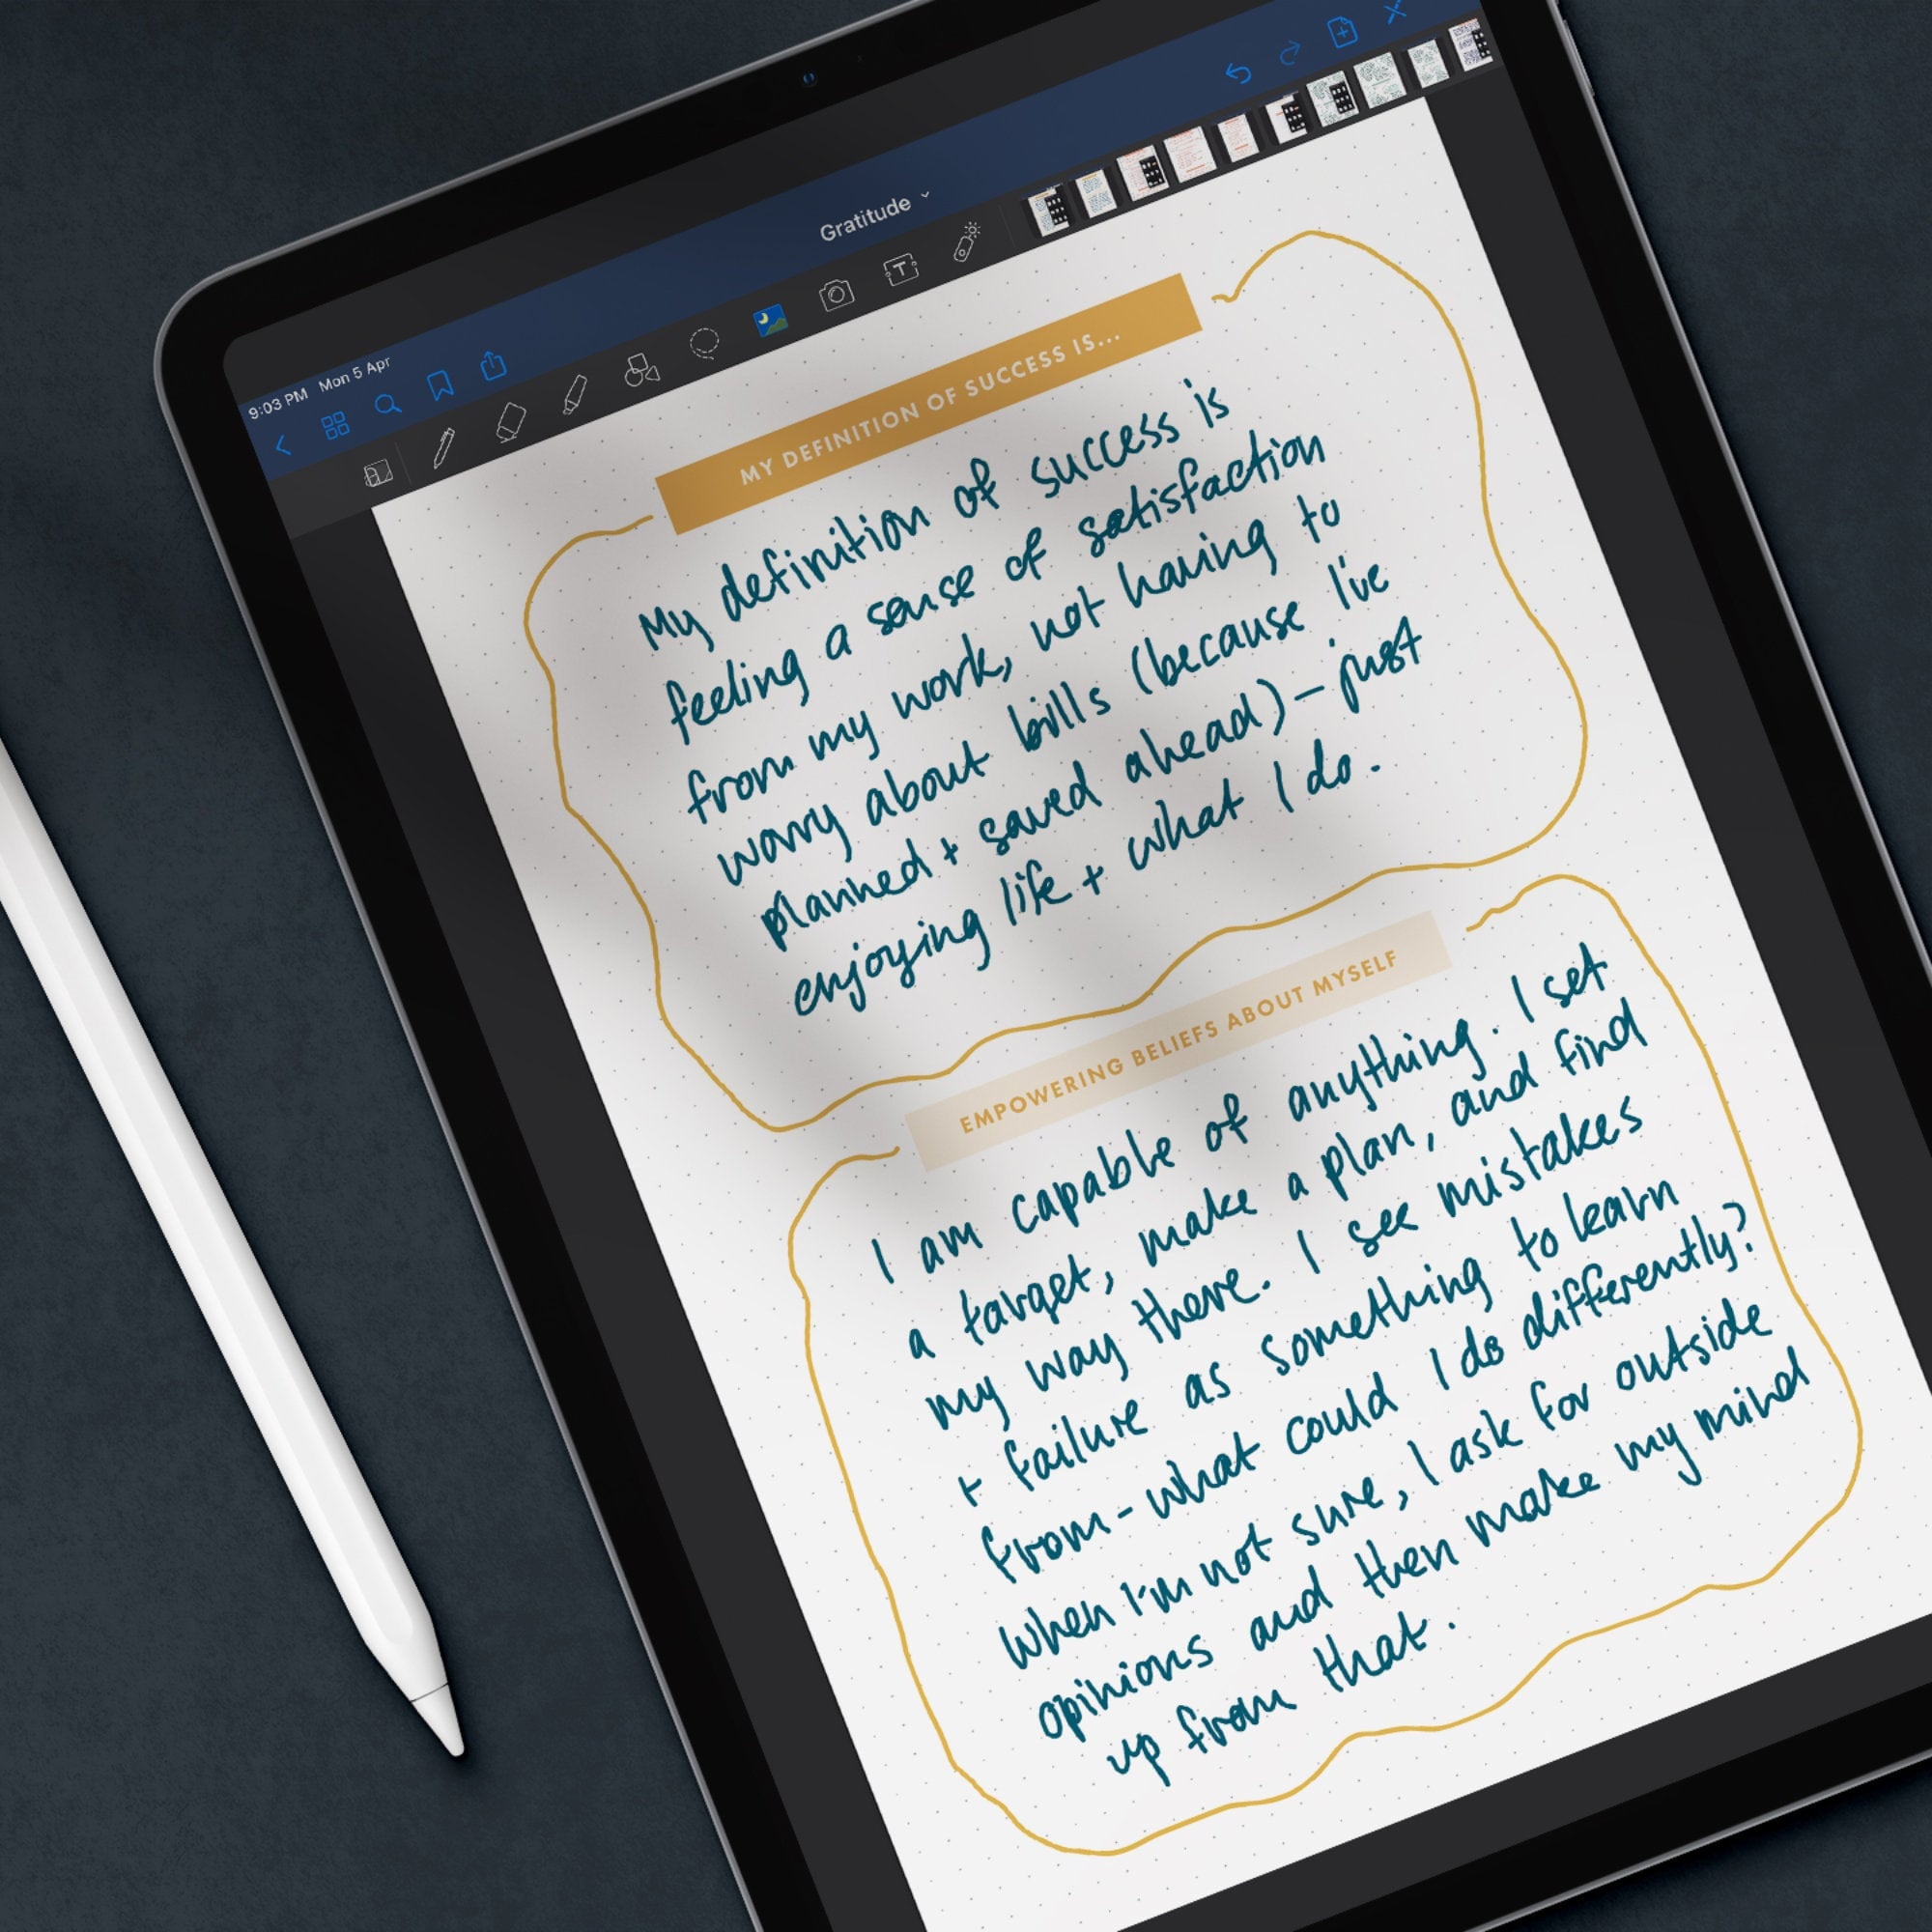 9:03 PM Mon 5 Apr
Gratitude
MY DEFINITION OF SUCCESS IS...
My definition of success is
feeling a sense of satisfaction
from my work, not having to
worry about bills (because I've
planned + saved ahead) – just
enjoying life + what I do.
EMPOWERING BELIEFS ABOUT MYSELF
I am capable of anything. I set
a target, make a plan, and find
my way there. I see mistakes
+ failure as something to learn
from - what could I do differently?
When I'm not sure, I ask for outside
opinions and then make my mind
up from that.